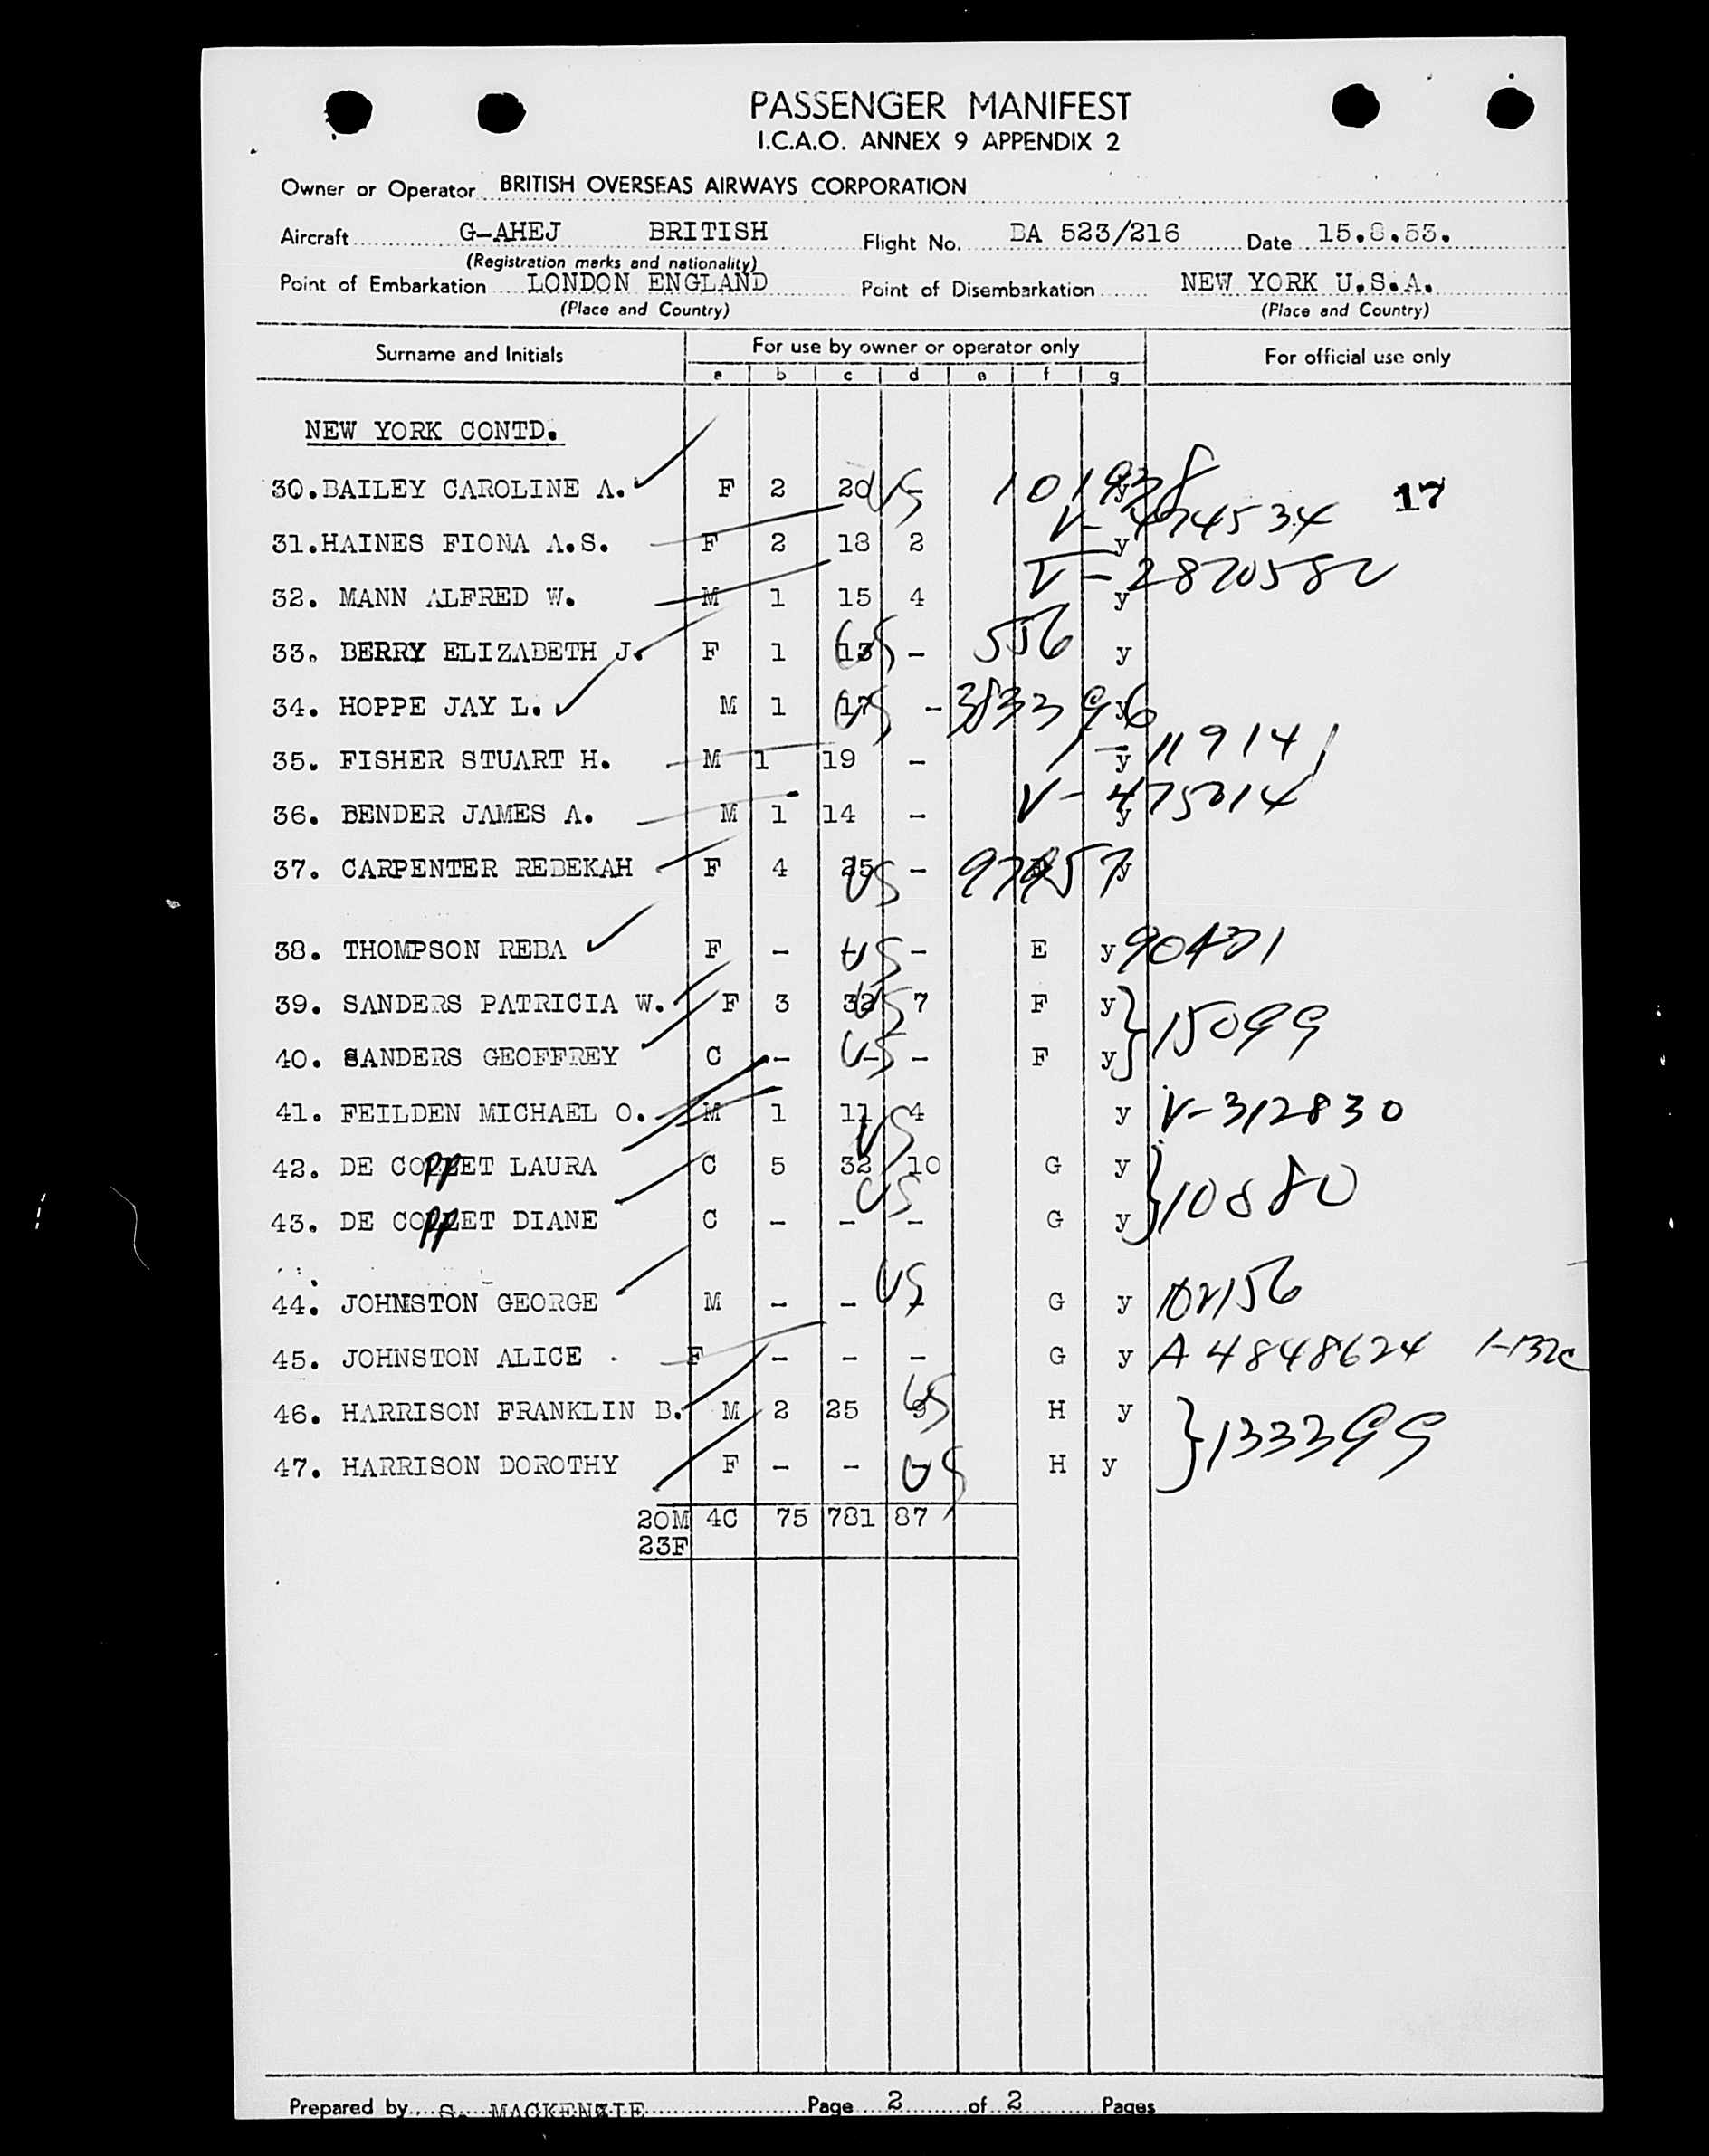 PASSENGER MANIFEST
I.C.A.O. ANNEX 9 APPENDIX 2
Owner or Operator BRITISH OVERSEAS AIRWAYS CORPORATION
Aircraft G-AHEJ BRITISH Flight No. BA 523/216 Date 15.8.53.
(Registration marks and nationality)
Point of Embarkation LONDON ENGLAND Point of Disembarkation NEW YORK U.S.A.
(Place and Country) (Place and Country)
Surname and Initials For use by owner or operator only For official use only
a b c d e f g
NEW YORK CONTD.
30.BAILEY CAROLINE A. F 2 20 US - 101938 y 17
31.HAINES FIONA A.S. F 2 18 2 y V-474534
32. MANN ALFRED W. M 1 15 4 y V-2870582
33. BERRY ELIZABETH J. F 1 13 US - 556 y
34. HOPPE JAY L. M 1 17 US - 383396 y
35. FISHER STUART H. M 1 19 - y
36. BENDER JAMES A. M 1 14 - y V-475214
37. CARPENTER REBEKAH F 4 25 US - y
38. THOMPSON REBA F - US - E y
39. SANDERS PATRICIA W. F 3 32 US 7 F y } 15099
40. SANDERS GEOFFREY C - US - F y
41. FEILDEN MICHAEL O. M 1 11 4 y V-312830
42. DE COPPET LAURA C 5 32 US 10 G y } 10880
43. DE COPPET DIANE C - - US - G y
44. JOHNSTON GEORGE M - - US - G y 102156
45. JOHNSTON ALICE F - - - G y A 4848624
46. HARRISON FRANKLIN B. M 2 25 US H y } 133399
47. HARRISON DOROTHY F - - US - H y
20M 4C 75 781 87
23F
Prepared by S. MACKENZIE Page 2 of 2 Pages